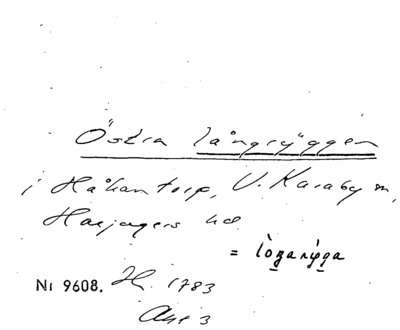 Östra långryggen
i Håkantorp, V. Karaby sn,
Harjagers hd
=
Nr 9608. H. 1783
Akt 3